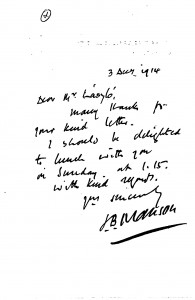 4
3 Dec 1914
Dear Mr. László,
Many thanks for
your kind letter.
I should be delighted
to lunch with you
on Sunday at 1.15.
With kind regards.
Yrs sincerely
J B Manson